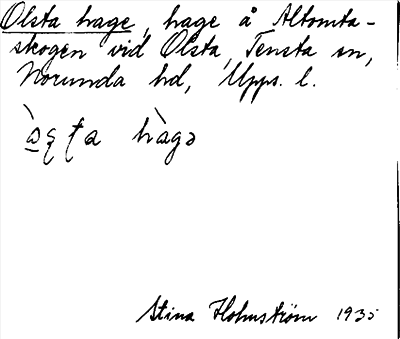 Olsta hage, hage å Altomta-
skogen vid Olsta, Tensta sn,
Norunda hd, Upps. l.
hàgə
Stina Holmström 1935